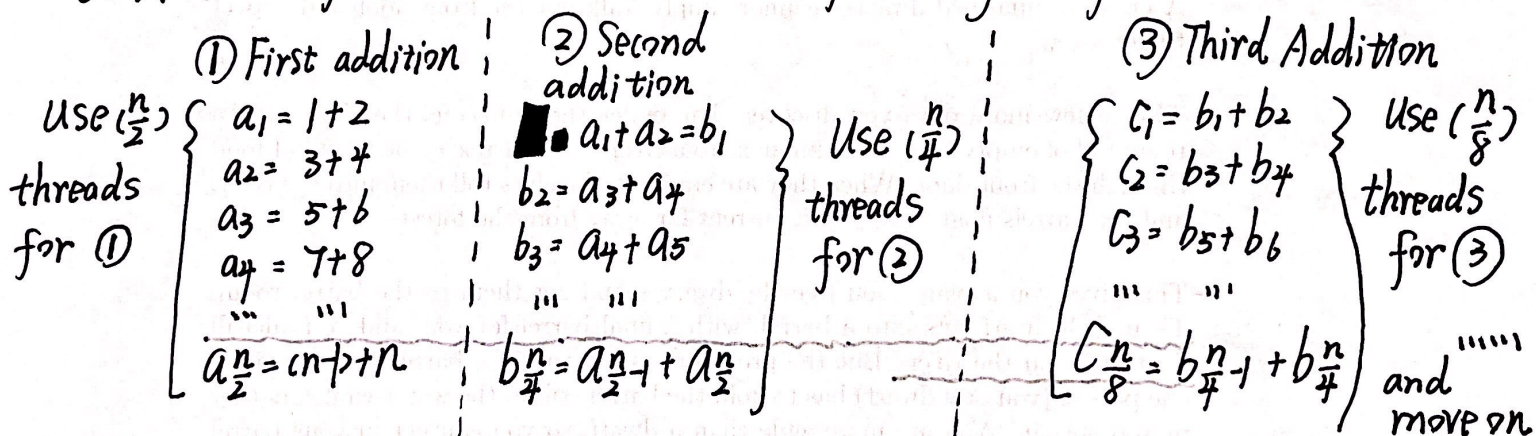 ① First addition
use (n/2)
threads
for ①
a₁ = 1+2
a₂ = 3+4
a₃ = 5+6
a₄ = 7+8
... ...
a n/2 = (n-1)+n
② Second
addition
a₁+a₂=b₁
b₂= a₃+a₄
b₃= a₄+a₅
... ...
b n/4 = a n/2 -1 + a n/2
Use (n/4)
threads
for ②
③ Third Addition
C₁= b₁+b₂
C₂= b₃+b₄
C₃= b₅+b₆
... ...
C n/8 = b n/4 -1 + b n/4
use (n/8)
threads
for ③
......
and
move on